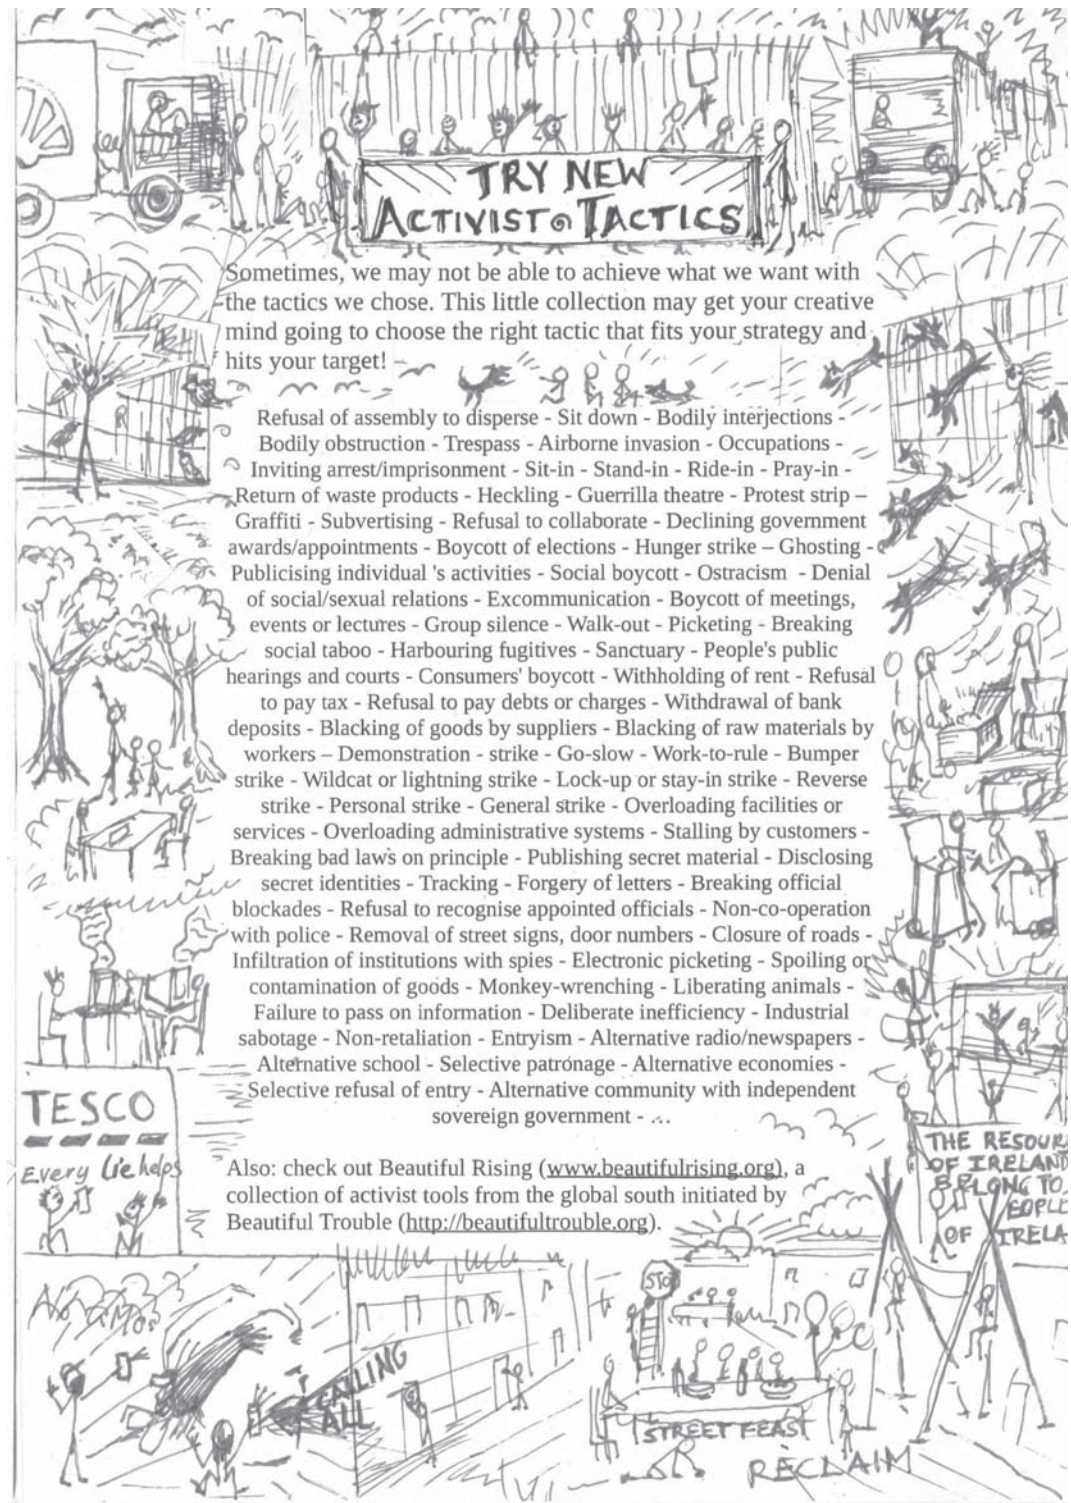 TRY NEW
ACTIVIST TACTICS
Sometimes, we may not be able to achieve what we want with
the tactics we chose. This little collection may get your creative
mind going to choose the right tactic that fits your strategy and
hits your target!
Refusal of assembly to disperse - Sit down - Bodily interjections -
Bodily obstruction - Trespass - Airborne invasion - Occupations -
Inviting arrest/imprisonment - Sit-in - Stand-in - Ride-in - Pray-in -
Return of waste products - Heckling - Guerrilla theatre - Protest strip –
Graffiti - Subvertising - Refusal to collaborate - Declining government
awards/appointments - Boycott of elections - Hunger strike – Ghosting -
Publicising individual 's activities - Social boycott - Ostracism - Denial
of social/sexual relations - Excommunication - Boycott of meetings,
events or lectures - Group silence - Walk-out - Picketing - Breaking
social taboo - Harbouring fugitives - Sanctuary - People's public
hearings and courts - Consumers' boycott - Withholding of rent - Refusal
to pay tax - Refusal to pay debts or charges - Withdrawal of bank
deposits - Blacking of goods by suppliers - Blacking of raw materials by
workers – Demonstration - strike - Go-slow - Work-to-rule - Bumper
strike - Wildcat or lightning strike - Lock-up or stay-in strike - Reverse
strike - Personal strike - General strike - Overloading facilities or
services - Overloading administrative systems - Stalling by customers -
Breaking bad laws on principle - Publishing secret material - Disclosing
secret identities - Tracking - Forgery of letters - Breaking official
blockades - Refusal to recognise appointed officials - Non-co-operation
with police - Removal of street signs, door numbers - Closure of roads -
Infiltration of institutions with spies - Electronic picketing - Spoiling or
contamination of goods - Monkey-wrenching - Liberating animals -
Failure to pass on information - Deliberate inefficiency - Industrial
sabotage - Non-retaliation - Entryism - Alternative radio/newspapers -
Alternative school - Selective patronage - Alternative economies -
Selective refusal of entry - Alternative community with independent
sovereign government - ...
TESCO
Every lie helps
THE RESOUR
OF IRELAND
BELONG TO
EOPLE
OF IRELA
Also: check out Beautiful Rising (www.beautifulrising.org), a
collection of activist tools from the global south initiated by
Beautiful Trouble (http://beautifultrouble.org).
STOP
CALLING
ALL
STREET FEAST
RECLAIM